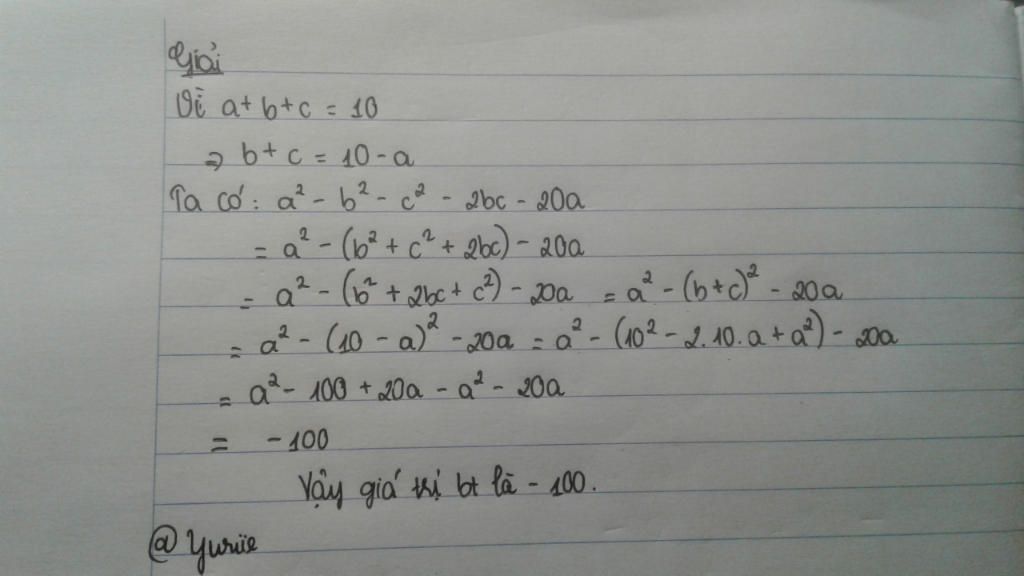 Giải
Vì a + b + c = 10
⇒ b + c = 10 - a
Ta có: a² - b² - c² - 2bc - 20a
= a² - (b² + c² + 2bc) - 20a
= a² - (b² + 2bc + c²) - 20a = a² - (b + c)² - 20a
= a² - (10 - a)² - 20a = a² - (10² - 2.10.a + a²) - 20a
= a² - 100 + 20a - a² - 20a
= - 100
Vậy giá trị bt là - 100.
@ Yuriie